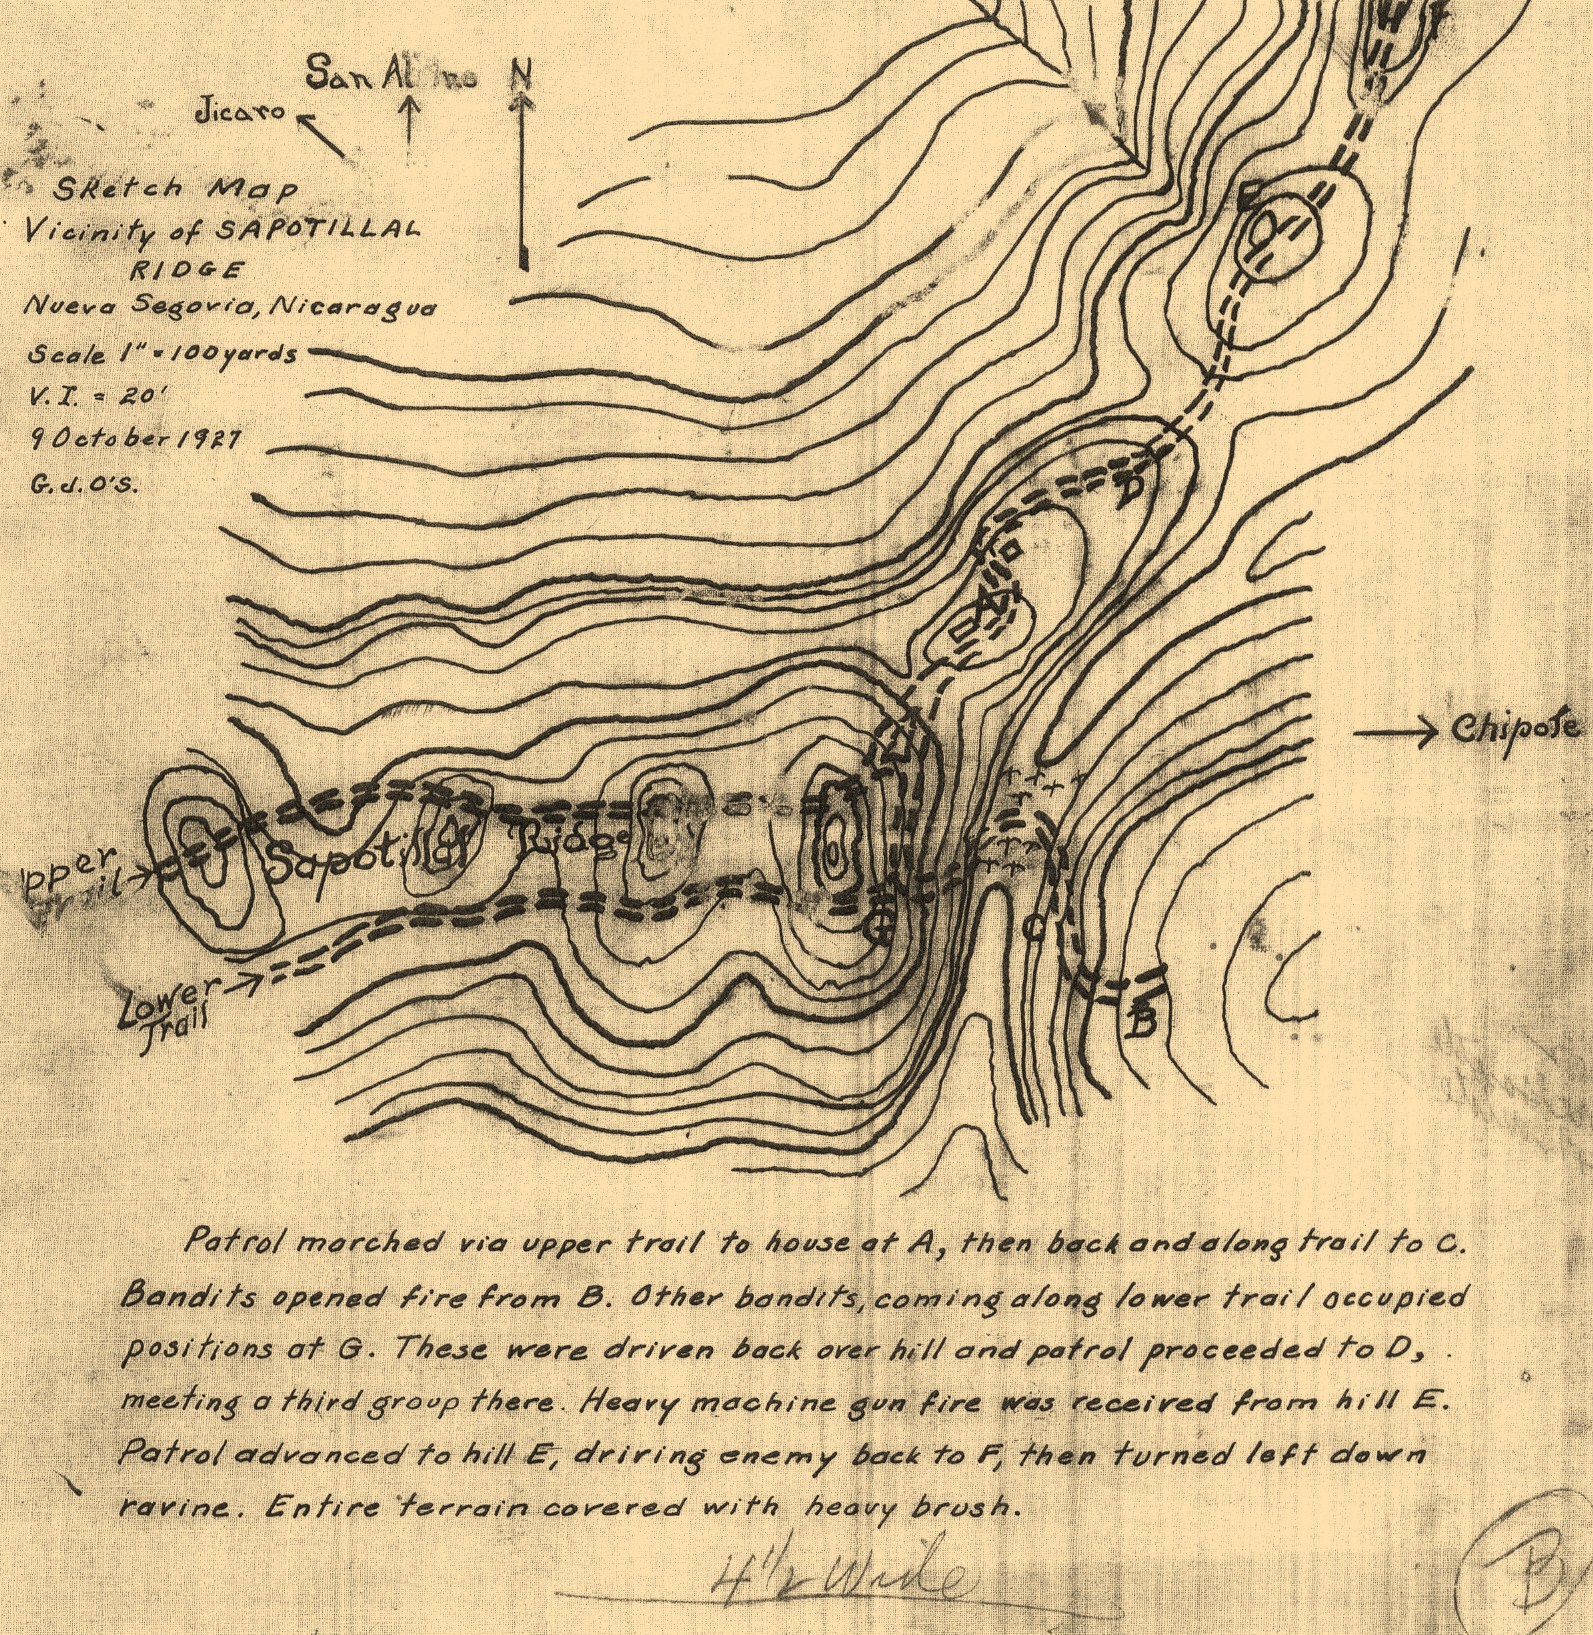 San Albino N
Jicaro
Sketch Map
Vicinity of SAPOTILLAL
RIDGE
Nueva Segovia, Nicaragua
Scale 1" = 100 yards
V.I. = 20'
9 October 1927
G.J.O'S.
E
D
A
Chipote
Sapotillal Ridge
pper
Trail
G
C
Lower
Trail
B
Patrol marched via upper trail to house at A, then back and along trail to C.
Bandits opened fire from B. Other bandits, coming along lower trail occupied
positions at G. These were driven back over hill and patrol proceeded to D,
meeting a third group there. Heavy machine gun fire was received from hill E.
Patrol advanced to hill E, driving enemy back to F, then turned left down
ravine. Entire terrain covered with heavy brush.
4 1/2 Wide
B